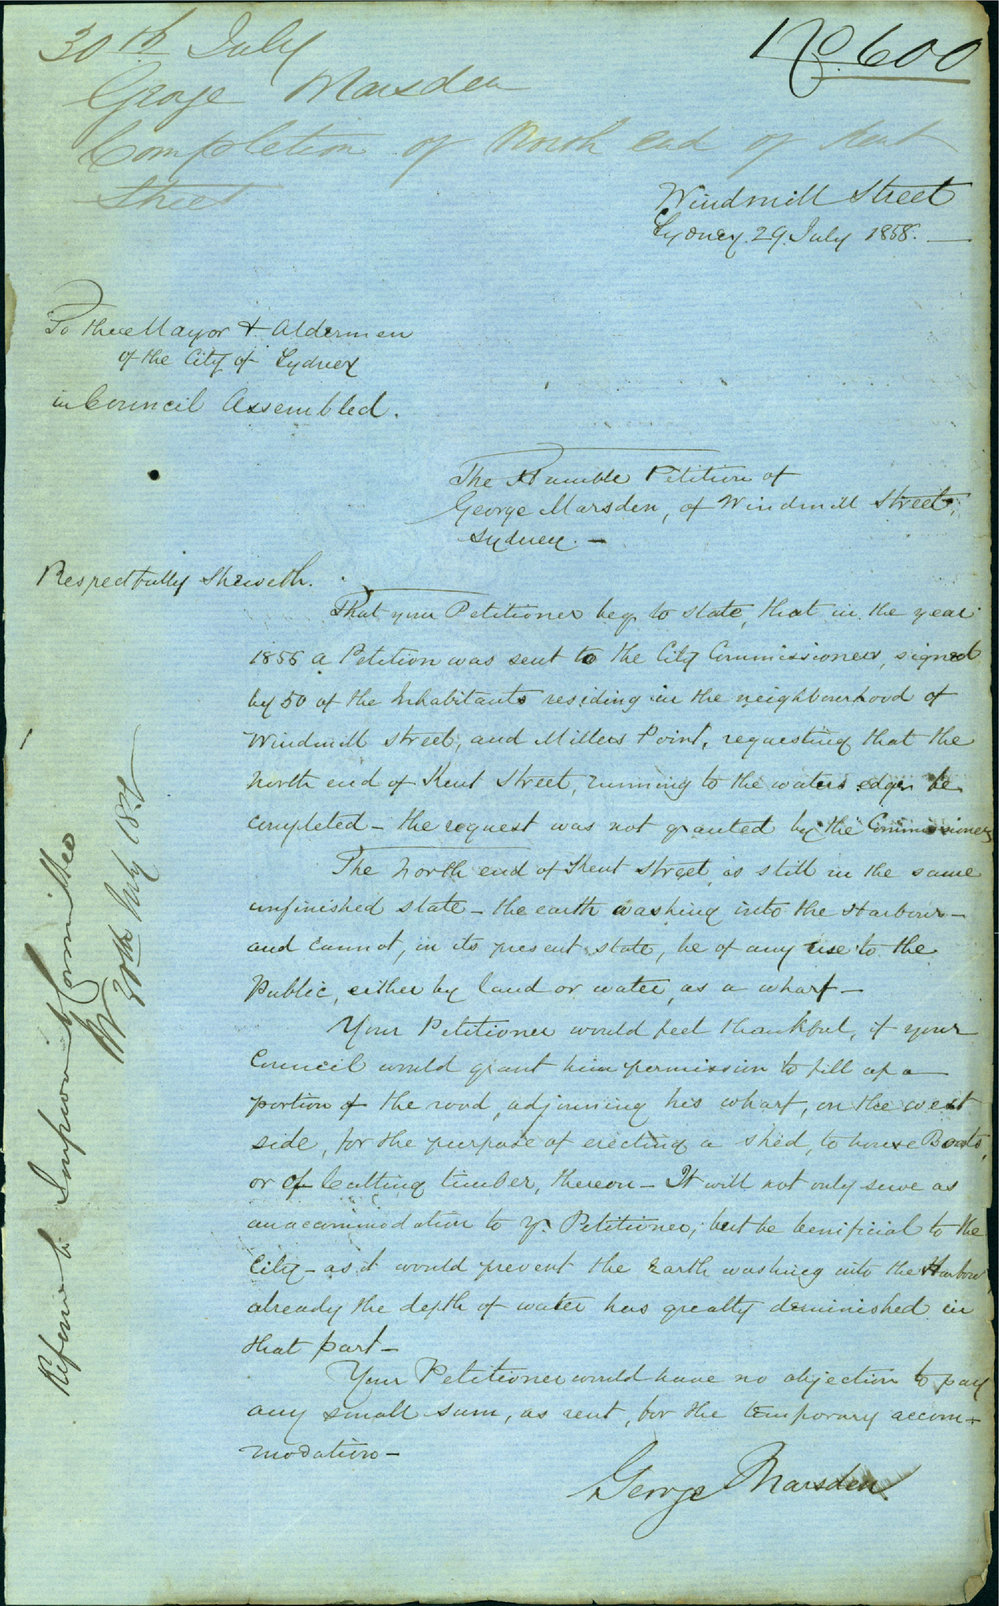 30th July
No. 600
George Marsden
Completion of North end of Kent
Street
Windmill Street
Sydney. 29 July 1858. —
To the Mayor & Aldermen
of the City of Sydney
in Council Assembled.
The Humble Petition of
George Marsden, of Windmill Street,
Sydney. —
Respectfully Sheweth.
That your Petitioner begs to state, that in the year
1856 a Petition was sent to the City Commissioners, signed
by 50 of the Inhabitants residing in the neighbourhood of
Windmill Street, and Millers Point, requesting that the
north end of Kent Street, running to the waters edge be
completed — the request was not granted by the Commissioners
The North end of Kent Street, is still in the same
unfinished state — the earth washing into the Harbour —
and cannot, in its present state, be of any use to the
Public, either by land or water, as a wharf —
Your Petitioner would feel thankful, if your
Council would grant him permission to fill up a
portion of the road, adjoining his wharf, on the west
side, for the purpose of erecting a shed, to house Boats,
or of Cutting timber, thereon — It will not only serve as
an accommodation to yr Petitioner, but be benificial to the
City — as it would prevent the Earth washing into the Harbour,
already the depth of water has greatly deminished in
that part —
Your Petitioner would have no objection to pay
any small sum, as rent, for the temporary accom-
modation —
George Marsden
Referred to Improvement Committee
30th July 1858